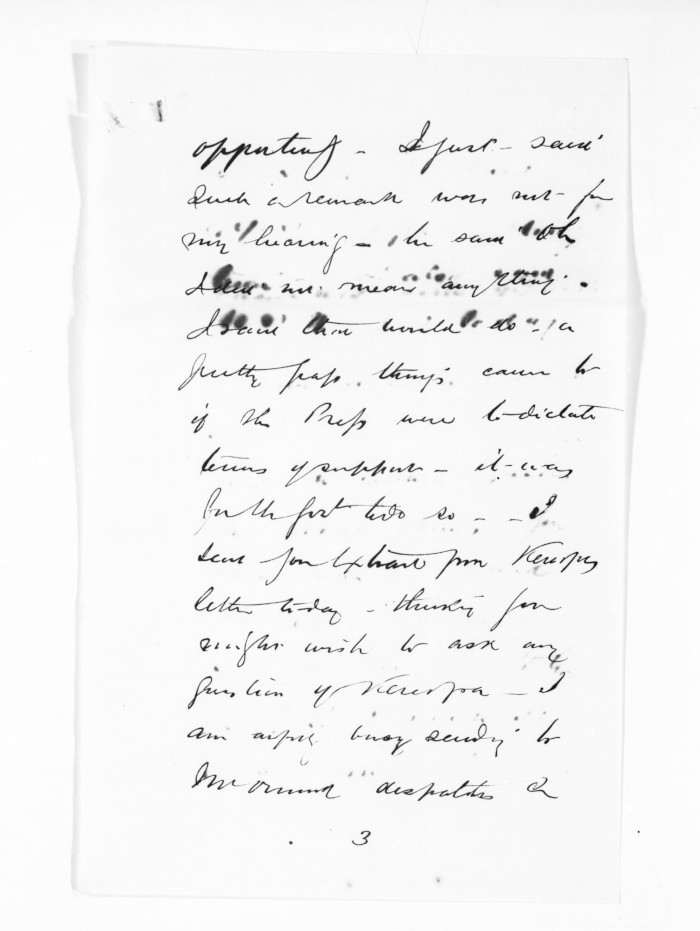 opportunity - I just - said
such a remark was not for
my hearing - he said "Oh
I did not mean anything.
I said that would do - a
pretty pass things came to
if the Press were to dictate
terms of support - it was
for the Govt to do so - - I
sent you Extract from
letter today - thinking you
might wish to ask any
question of - I
am busy sending to
despatches &
3